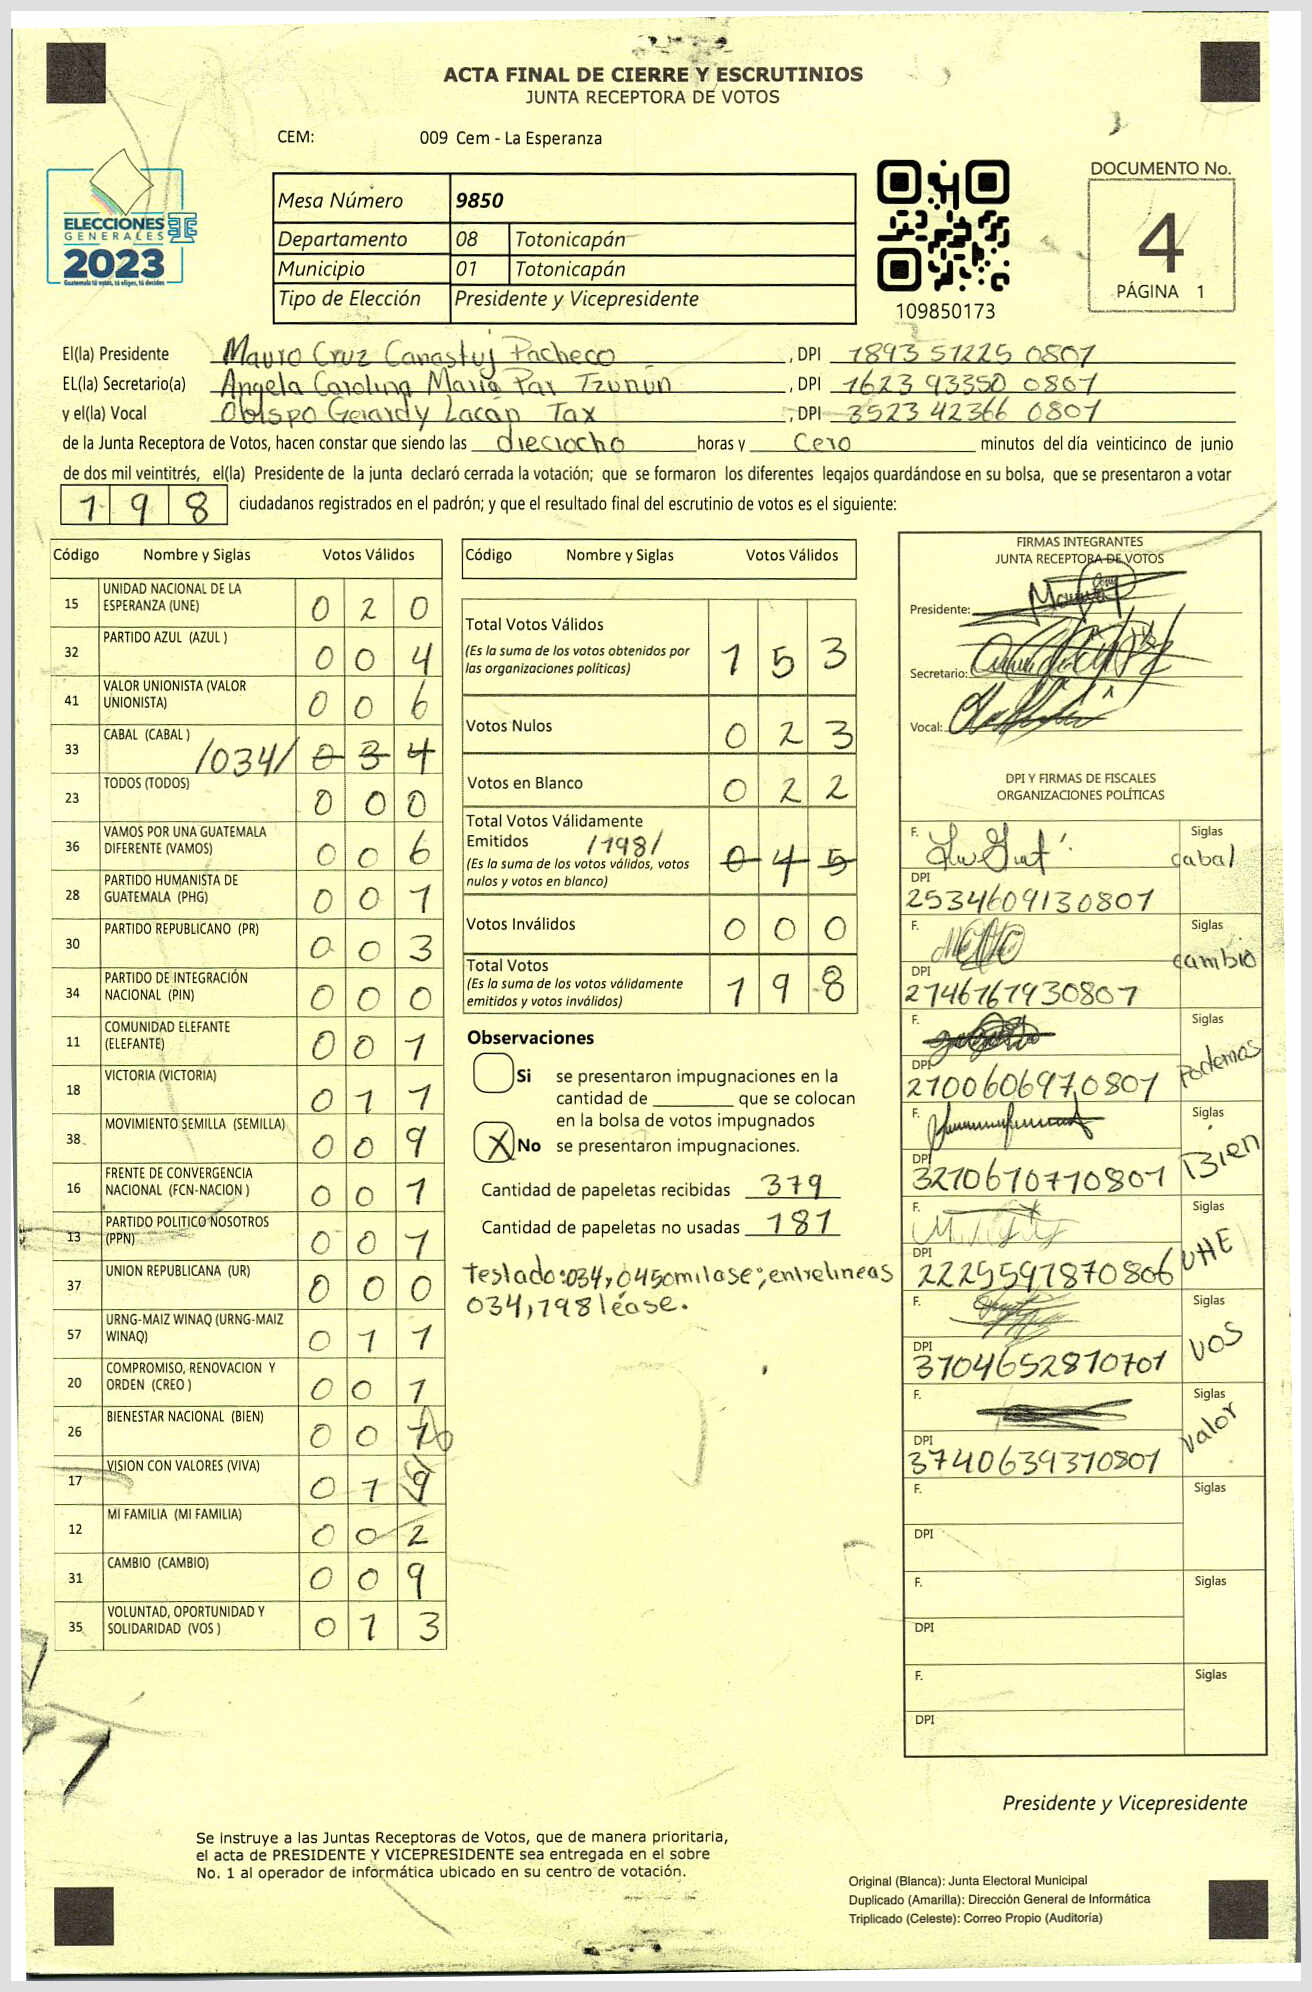 ACTA FINAL DE CIERRE Y ESCRUTINIOS
JUNTA RECEPTORA DE VOTOS
CEM: 009 Cem - La Esperanza
ELECCIONES
GENERALES
2023
Guatemala tú votas, tú eliges, tú decides
Mesa Número 9850
Departamento 08 Totonicapán
Municipio 01 Totonicapán
Tipo de Elección Presidente y Vicepresidente
109850173
DOCUMENTO No.
4
PÁGINA 1
El(la) Presidente Mauro Cruz Canastuj Pacheco, DPI 1893 51225 0801
EL(la) Secretario(a) Angela Carolina María Par Tzunún, DPI 1623 93350 0801
y el(la) Vocal Obispo Gerardy Lacán Tax, DPI 3523 42366 0801
de la Junta Receptora de Votos, hacen constar que siendo las dieciocho horas y cero minutos del día veinticinco de junio
de dos mil veintitrés, el(la) Presidente de la junta declaró cerrada la votación; que se formaron los diferentes legajos guardándose en su bolsa, que se presentaron a votar
198 ciudadanos registrados en el padrón; y que el resultado final del escrutinio de votos es el siguiente:
Código Nombre y Siglas Votos Válidos
15 UNIDAD NACIONAL DE LA ESPERANZA (UNE) 0 2 0
32 PARTIDO AZUL (AZUL ) 0 0 4
41 VALOR UNIONISTA (VALOR UNIONISTA) 0 0 6
33 CABAL (CABAL ) /034/ 0 3 4
23 TODOS (TODOS) 0 0 0
36 VAMOS POR UNA GUATEMALA DIFERENTE (VAMOS) 0 0 6
28 PARTIDO HUMANISTA DE GUATEMALA (PHG) 0 0 1
30 PARTIDO REPUBLICANO (PR) 0 0 3
34 PARTIDO DE INTEGRACIÓN NACIONAL (PIN) 0 0 0
11 COMUNIDAD ELEFANTE (ELEFANTE) 0 0 1
18 VICTORIA (VICTORIA) 0 1 1
38 MOVIMIENTO SEMILLA (SEMILLA) 0 0 9
16 FRENTE DE CONVERGENCIA NACIONAL (FCN-NACION ) 0 0 1
13 PARTIDO POLITICO NOSOTROS (PPN) 0 0 1
37 UNION REPUBLICANA (UR) 0 0 0
57 URNG-MAIZ WINAQ (URNG-MAIZ WINAQ) 0 1 1
20 COMPROMISO, RENOVACION Y ORDEN (CREO ) 0 0 1
26 BIENESTAR NACIONAL (BIEN) 0 0 1
17 VISION CON VALORES (VIVA) 0 1 9
12 MI FAMILIA (MI FAMILIA) 0 0 2
31 CAMBIO (CAMBIO) 0 0 9
35 VOLUNTAD, OPORTUNIDAD Y SOLIDARIDAD (VOS ) 0 1 3
Código Nombre y Siglas Votos Válidos
Total Votos Válidos 1 5 3
(Es la suma de los votos obtenidos por
las organizaciones políticas)
Votos Nulos 0 2 3
Votos en Blanco 0 2 2
Total Votos Válidamente
Emitidos /198/ 0 4 5
(Es la suma de los votos válidos, votos
nulos y votos en blanco)
Votos Inválidos 0 0 0
Total Votos 1 9 8
(Es la suma de los votos válidamente
emitidos y votos inválidos)
Observaciones
Si se presentaron impugnaciones en la
cantidad de ________ que se colocan
en la bolsa de votos impugnados
X No se presentaron impugnaciones.
Cantidad de papeletas recibidas 379
Cantidad de papeletas no usadas 181
Testado:034,045omitase;entrelineas
034,198léase.
FIRMAS INTEGRANTES
JUNTA RECEPTORA DE VOTOS
Presidente:
Secretario:
Vocal:
DPI Y FIRMAS DE FISCALES
ORGANIZACIONES POLÍTICAS
F. Siglas cabal
DPI 2534609130801
F. Siglas cambio
DPI 2746767930807
F. Siglas Podemos
DPI 2100606970801
F. Siglas Bien
DPI 3210670770801
F. Siglas UNE
DPI 2225597870806
F. Siglas VOS
DPI 3704652870701
F. Siglas valor
DPI 3740639370801
F. Siglas
DPI
F. Siglas
DPI
F. Siglas
DPI
Presidente y Vicepresidente
Se instruye a las Juntas Receptoras de Votos, que de manera prioritaria,
el acta de PRESIDENTE Y VICEPRESIDENTE sea entregada en el sobre
No. 1 al operador de informática ubicado en su centro de votación.
Original (Blanca): Junta Electoral Municipal
Duplicado (Amarilla): Dirección General de Informática
Triplicado (Celeste): Correo Propio (Auditoría)